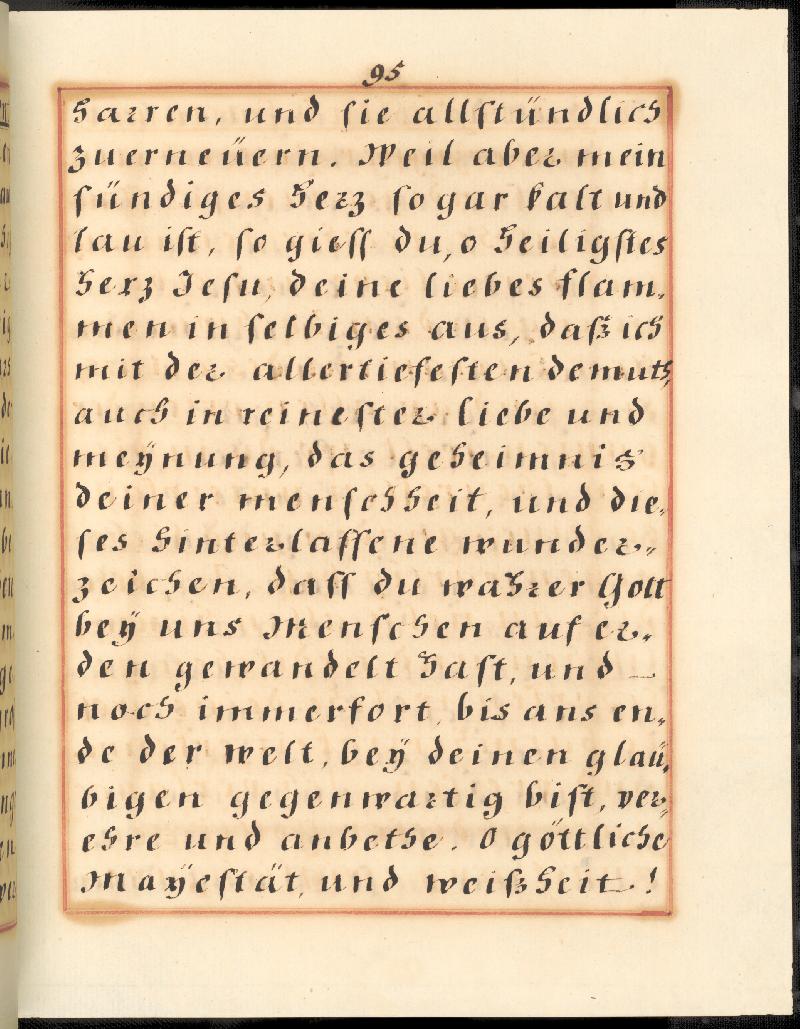 95
harren, und sie allstündlich
zuerneüern. Weil aber mein
sündiges Herz so gar kalt und
lau ist, so giess du, o Heiligstes
Herz Jesu, deine liebes flam,
men in selbiges aus, daß ich
mit der allertiefesten demuth,
auch in reinester liebe und
meÿnung, das geheimnis
deiner menschheit, und die,
ses hinterlassene wunder,,
zeichen, dass du wahrer Gott
beÿ uns Menschen auf er,
den gewandelt hast, und _
noch immerfort, bis ans en,
de der welt, beÿ deinen glaü,
bigen gegenwartig bist, ver,,
ehre und anbethe. O göttliche
Maÿestät, und weißheit !